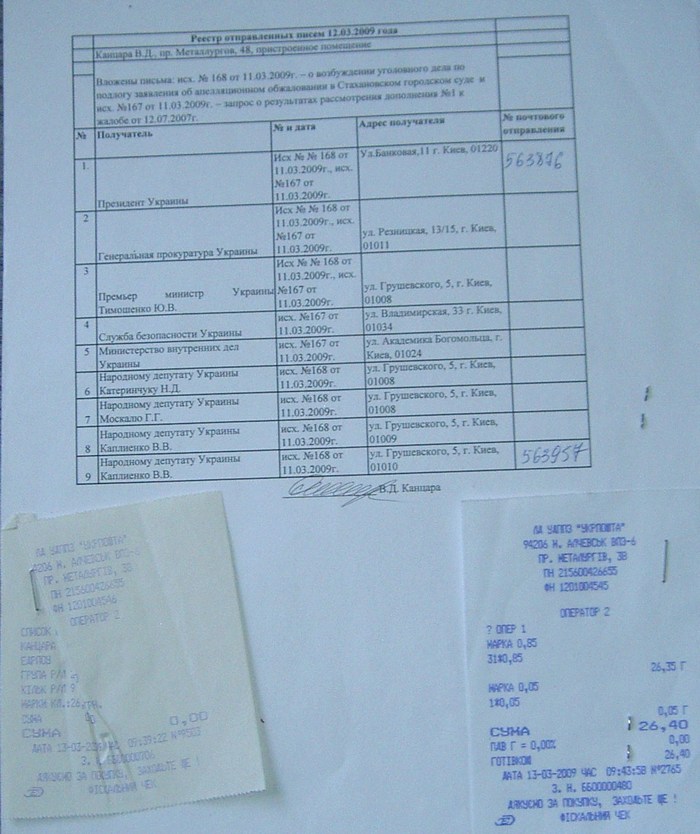 Реестр отправленных писем 12.03.2009 года
Канцара В.Д., пр. Металлургов, 48, пристроенное помещение
Вложены письма: исх. № 168 от 11.03.2009г. – о возбуждении уголовного дела по
подлогу заявления об апелляционном обжаловании в Стахановском городском суде и
исх. №167 от 11.03.2009г. – запрос о результатах рассмотрения дополнения №1 к
жалобе от 12.07.2007г.
№ Получатель № и дата Адрес получателя № почтового
отправления
1 Президент Украины
Исх № № 168 от
11.03.2009г., исх.
№167 от
11.03.2009г.
Ул.Банковая,11 г. Киев, 01220
563876
2 Генеральная прокуратура Украины
Исх № № 168 от
11.03.2009г., исх.
№167 от
11.03.2009г.
ул. Резницкая, 13/15, г. Киев,
01011
3 Премьер министр Украины
Тимошенко Ю.В.
Исх № № 168 от
11.03.2009г., исх.
№167 от
11.03.2009г.
ул. Грушевского, 5, г. Киев,
01008
4 Служба безопасности Украины
исх. №167 от
11.03.2009г.
ул. Владимирская, 33 г. Киев,
01034
5 Министерство внутренних дел
Украины
исх. №167 от
11.03.2009г.
ул. Академика Богомольца, г.
Киев, 01024
6 Народному депутату Украины
Катеринчуку Н.Д.
исх. №168 от
11.03.2009г.
ул. Грушевского, 5, г. Киев,
01008
7 Народному депутату Украины
Москалю Г.Г.
исх. №168 от
11.03.2009г.
ул. Грушевского, 5, г. Киев,
01008
8 Народному депутату Украины
Каплиенко В.В.
исх. №168 от
11.03.2009г.
ул. Грушевского, 5, г. Киев,
01009
9 Народному депутату Украины
Каплиенко В.В.
исх. №168 от
11.03.2009г.
ул. Грушевского, 5, г. Киев,
01010
563957
В.Д. Канцара
ЛА УДППЗ "УКРПОШТА"
94206 М. АЛЧЕВСЬК ВПЗ-6
ПР. МЕТАЛУРГІВ, 3В
ПН 215600426655
ФН 1201004546
ОПЕРАТОР 2
СПИСОК
КАНЦАРА
ГРУПА Р/Л
КІЛЬК Р/Л 9
СУМА
СУМА 0,00
ДАТА 13-03- ЧАС 09:39:22 №9503
ДЯКУЄМО ЗА ПОКУПКУ, ЗАХОДЬТЕ ЩЕ !
ФІСКАЛЬНИЙ ЧЕК
ЛА УДППЗ "УКРПОШТА"
94206 М. АЛЧЕВСЬК ВПЗ-6
ПР. МЕТАЛУРГІВ, 3В
ПН 215600426655
ФН 1201004545
ОПЕРАТОР 2
? ОПЕР 1
МАРКА 0,85
31*0,85
26,35 Г
МАРКА 0,05
1*0,05
0,05 Г
СУМА 26,40
ПДВ Г = 0,00% 0,00
ГОТІВКОЮ 26,40
ДАТА 13-03-2009 ЧАС 09:43:58 №2765
З. Н. ББ00000480
ДЯКУЄМО ЗА ПОКУПКУ, ЗАХОДЬТЕ ЩЕ !
ФІСКАЛЬНИЙ ЧЕК